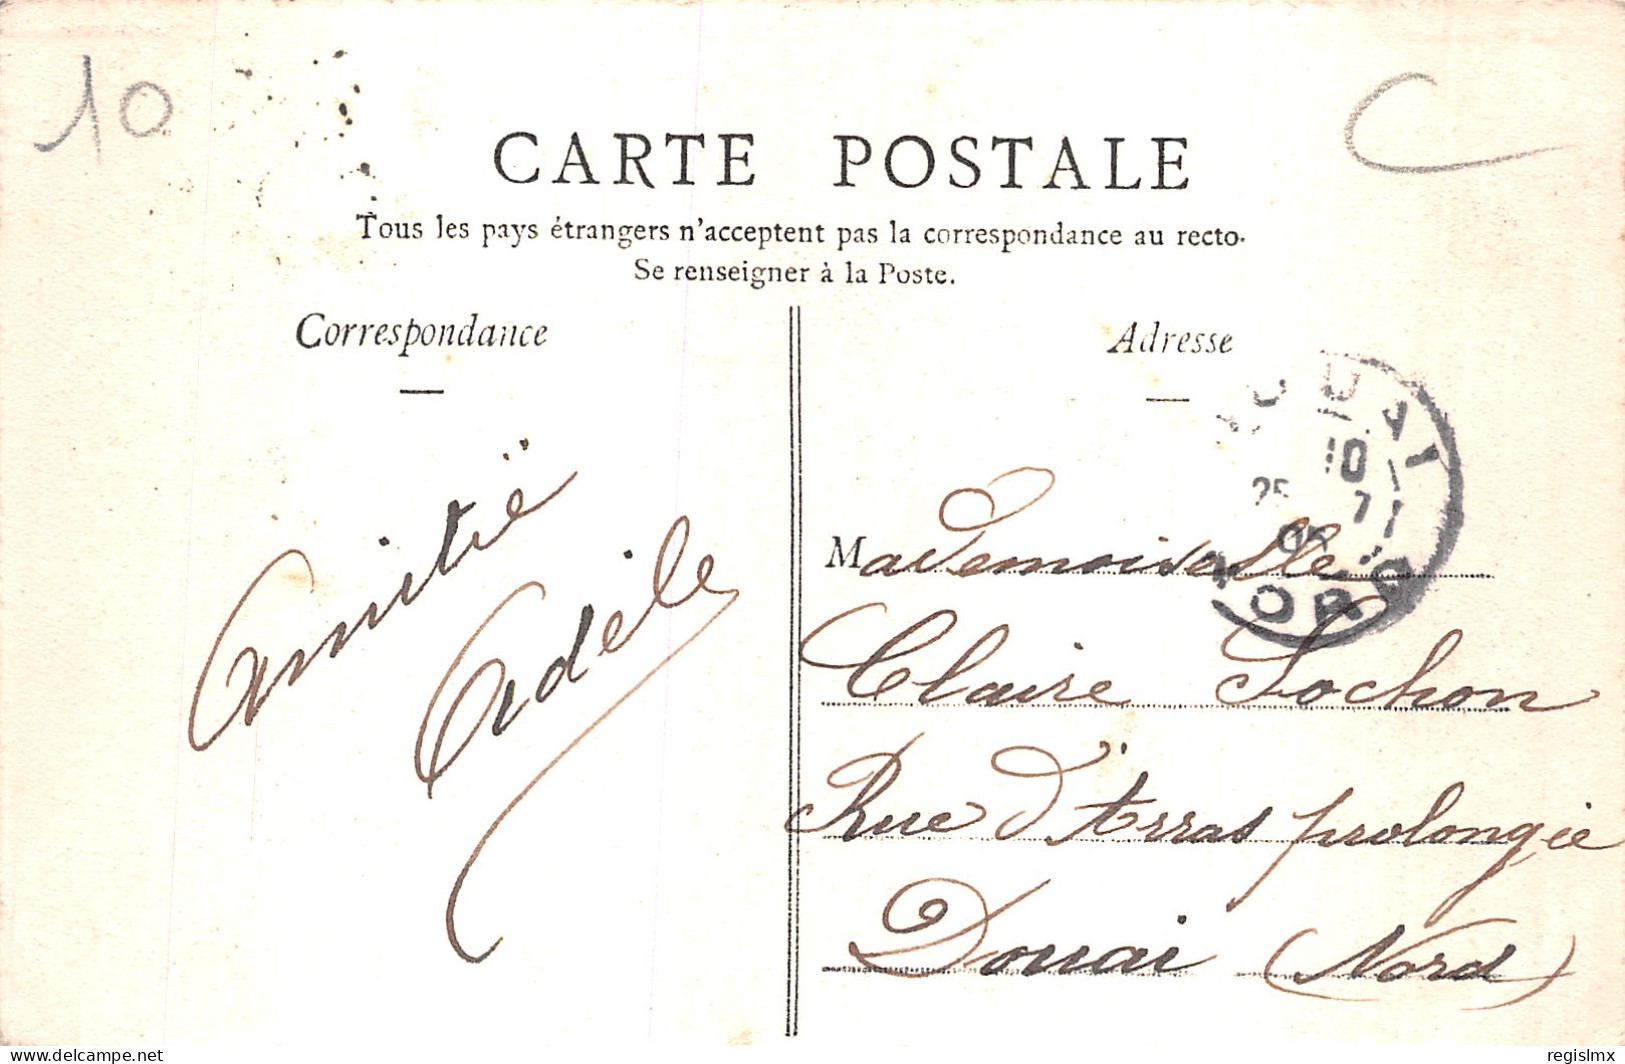 10
C
CARTE POSTALE
Tous les pays étrangers n'acceptent pas la correspondance au recto.
Se renseigner à la Poste.
Correspondance
Amitië
Adèle
Adresse
DOUAI
10
25 7
05
NORD
Mademoiselle
Claire Sochon
Rue d'Arras prolongée
Douai (Nord)
delcampe.net
regislmx